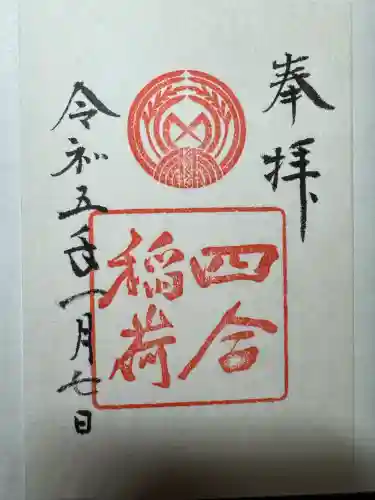 奉拝
四合
稲荷
令和五年一月七日